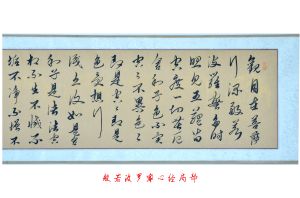 觀自在菩薩
行深般若
波羅蜜多時
照見五蘊皆
空度一切苦厄
舍利子色不異
空空不異色色
即是空空即是
色受想行
識亦復如是舍
利子是諸法空
相不生不滅不
垢不净不增不
般若波罗蜜心经局部